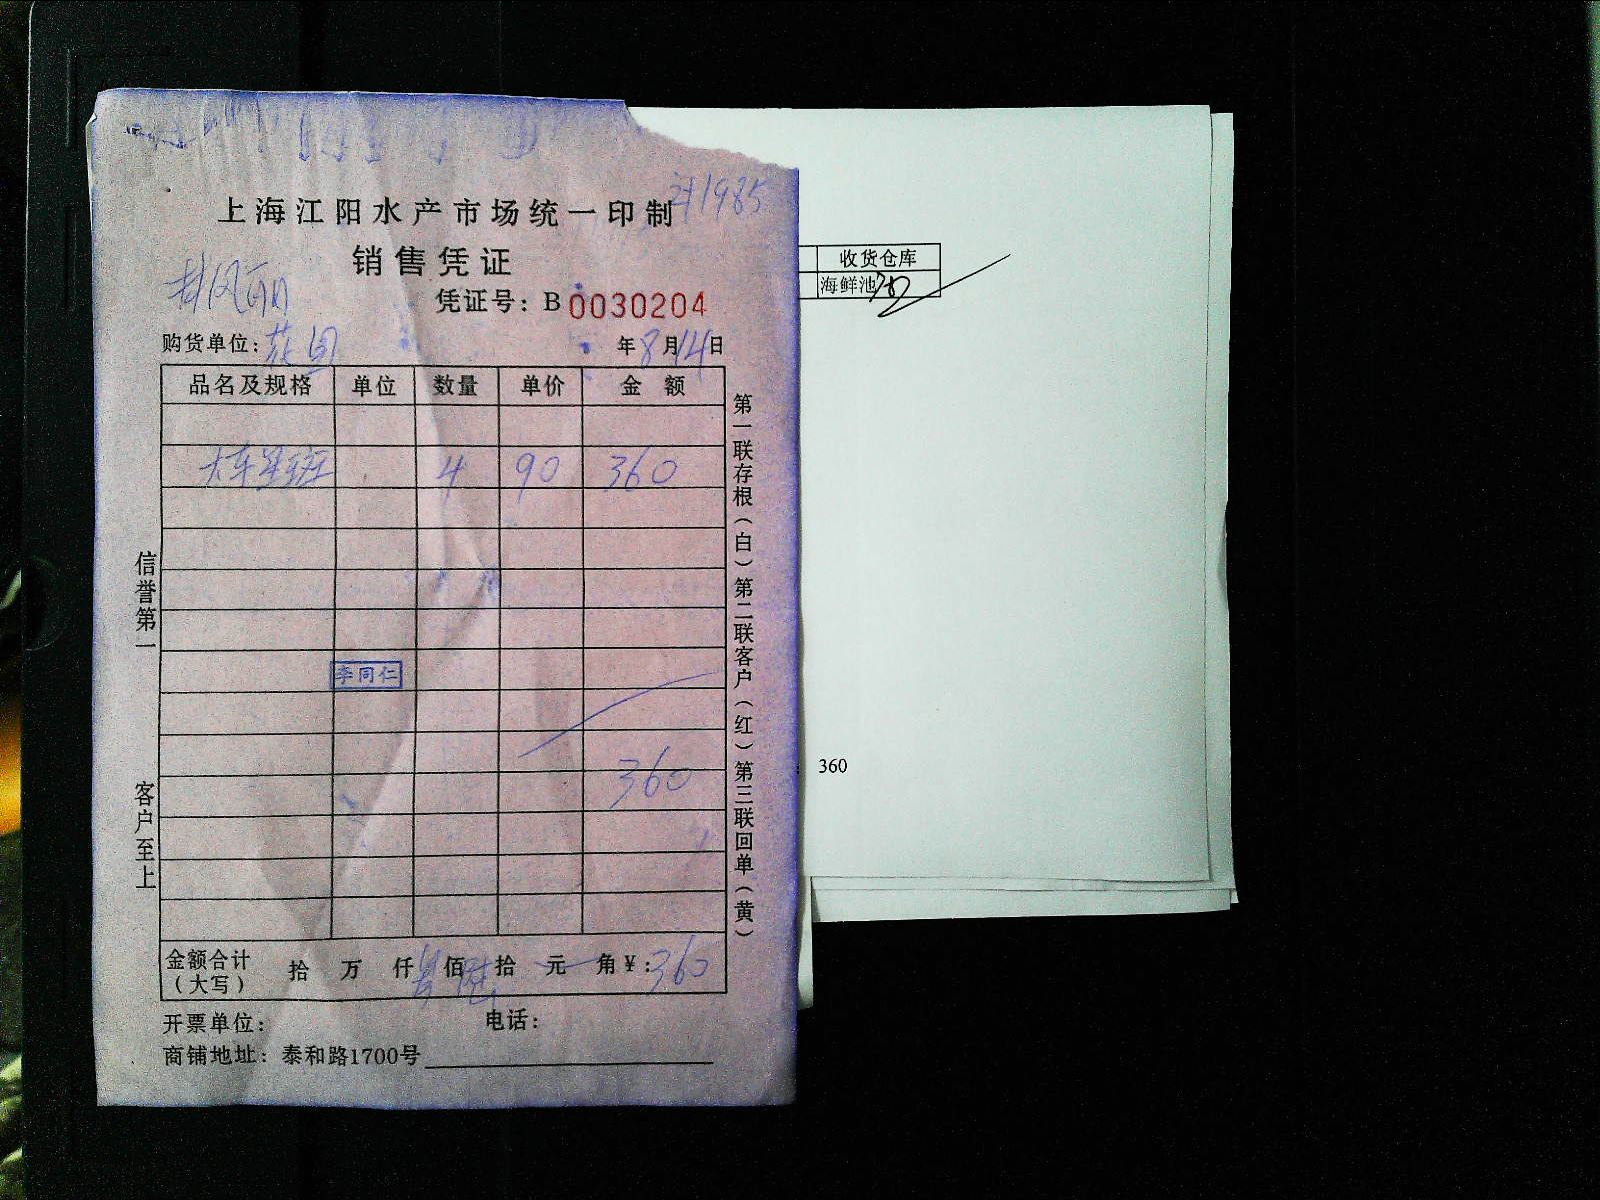 1985
上海江阳水产市场统一印制
销售凭证
凭证号：B 0030204
购货单位：花园 年8月14日
品名及规格 单位 数量 单价 金额
4 90 360
李同仁
360
金额合计（大写） 拾 万 仟 叁 佰 陆 拾 元 角 ¥：360
开票单位： 电话：
商铺地址：泰和路1700号
信誉第一 客户至上
第一联存根（白）第二联客户（红）第三联回单（黄）
收货仓库
海鲜池
360